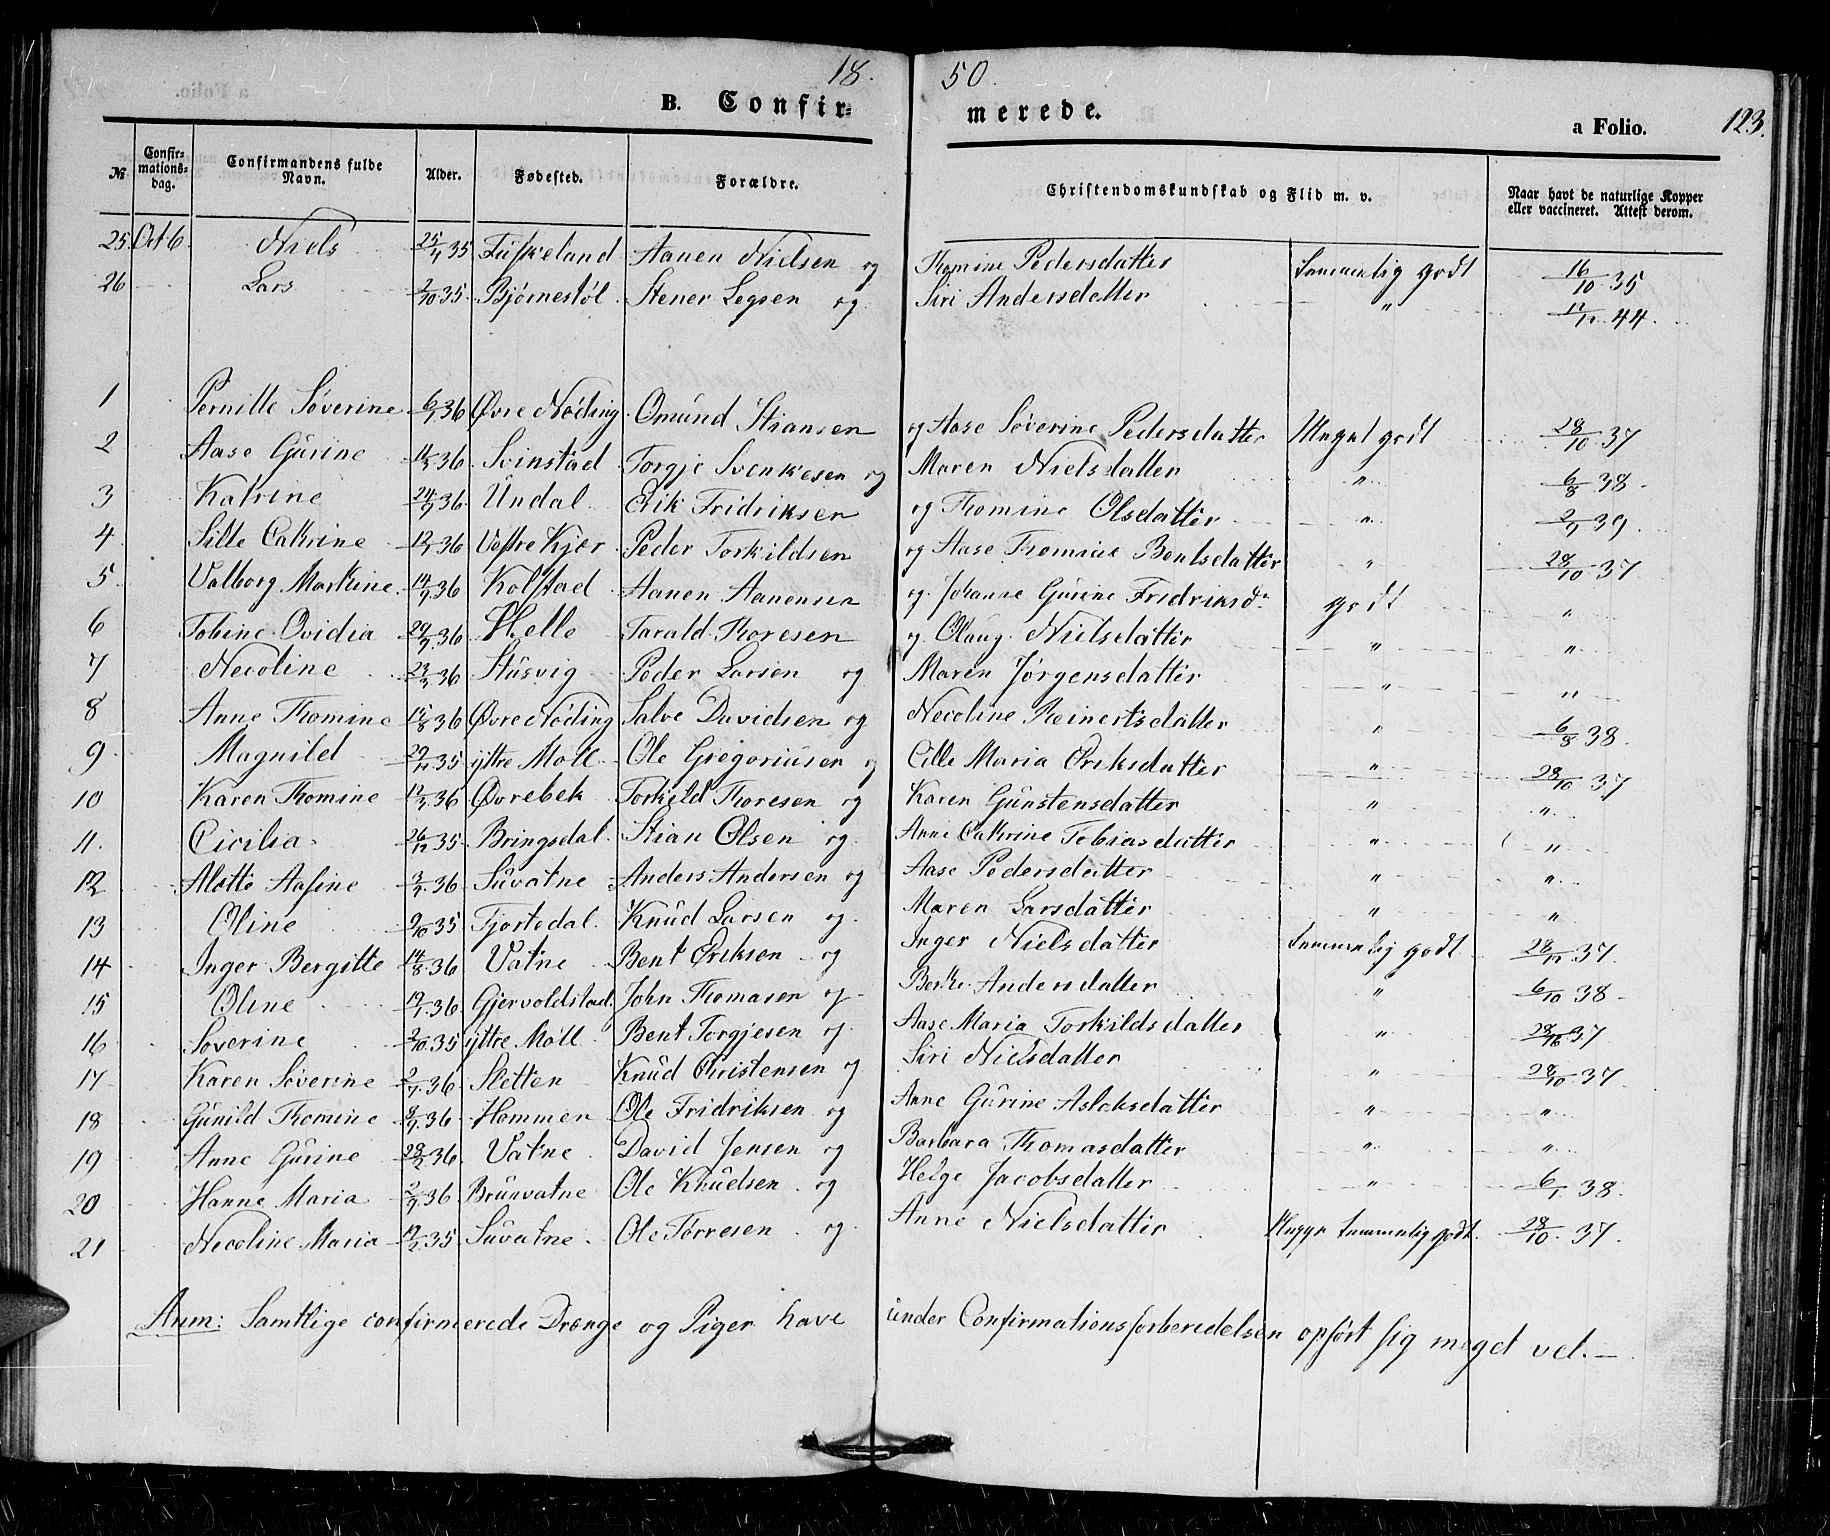 18. 50.
B. Confir= merede. a Folio. 123.
№ Confir-mations-dag. Confirmandens fulde Navn. Alder. Fødested. Forældre. Christendomskundskab og Flid m. v. Naar havt de naturlige Kopper eller vaccineret. Attest derom.
25 Oct 6. Niels 25/4 35 Fuskeland Aanen Nielsen og Thomine Pedersdatter temmelig godt 16/10 35
26 Lars 2/10 35. Bjørnestøl Stener Legsen og Siri Andersdatter " 44.
1 Pernille Søverine 6/1 36 Øvre Nøding Omund Stiansen og Aase Søverine Pedersdatter Meget godt 28/10 37
2 Aase Gurine 36 Svinstad Torgje Svenkesen og Maren Nielsdatter " 6/8 38
3 Katrine 36 Undal Erik Fridriksen og Thomine Olsdatter " 39
4 Sille Cathrine 36 Vestre Kjær Peder Torkildsen og Aase Thomine Bentsdatter " 28/10 37
5 Valborg Marthine 36 Kolstad Aanen Aanensen og Johanne Gurine Fridriksd. godt "
6 Tobine Ovidia 36 Helle Tarald Thoresen og Olaug Nielsdatter " "
7 Necoline 23/3 36 Stusvig Peder Larsen og Maren Jørgensdatter " "
8 Anne Thomine 36 Øvre Nøding Salve Davidsen og Necoline Reinertsdatter " 6/8 38
9 Magnild 35 ytre Møll Ole Gregoriusen og Cille Maria Eriksdatter " 28/10 37
10 Karen Thomine 36 Øvrebek Torkild Thoresen og Karen Gunstensdatter " "
11. Cicilia 26/12 35 Bringsdal Stian Olsen og Anne Cathrine Tobiasdatter " "
12 Alette Aasine 36 Suvatne Anders Andersen og Aase Pedersdatter " "
13 Oline 9/10 35 Fjortedal Knud Larsen og Maren Larsdatter " "
14 Inger Bergitte 14/8 36 Vatne Bent Eriksen og Inger Nielsdatter temmelig godt 37
15 Oline 36 Gjervoldstad John Thomasen og Berthe Andersdatter " 6/10 38
16 Søverine 2/10 35 ytre Møll Bent Torgjesen og Aase Maria Torkildsdatter " 28/10 37
17 Karen Søverine 36 Sletten Knud Christensen og Siri Nielsdatter " 28/10 37
18 Gunild Thomine 36 Hommen Ole Fridriksen og Anne Gurine Aslaksdatter " "
19 Anne Gurine 28/2 36 Vatne David Jensen og Barbara Thomasdatter " "
20 Hanne Maria 36 Brunvatne Ole Knudsen og Helge Jacobsdatter " 6/1 38
21 Necoline Maria 35 Suvatne Ole Tørresen og Anne Nielsdatter temmelig godt 28/10 37.
Anm: Samtlige confirmerede Drenge og Piger have under Confirmationsforberedelsen opført sig meget vel.